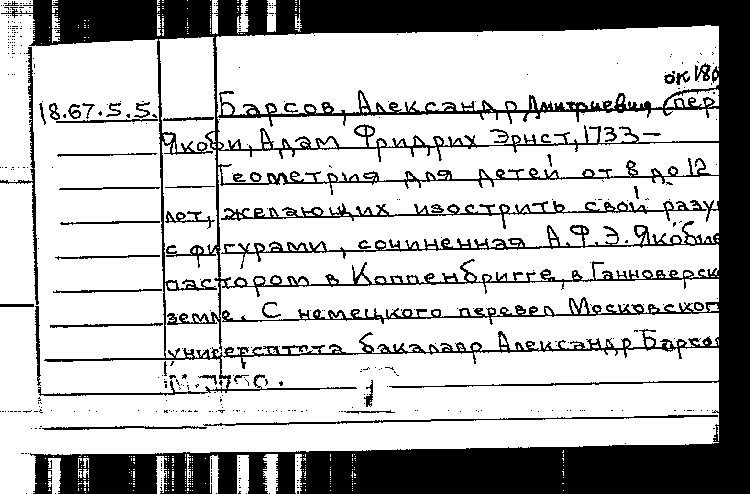 ок 180
18.67.5.5. Барсов, Александр Дмитриевич (пер
Якоби, Адам Фридрих Эрнст, 1733-
Геометрия для детей от 8 до 12
лет, желающих изострить свой разу
с фигурами, сочиненная А.Ф.Э. Якобие
пастором в Коппенбригге, в Ганноверск
земле. С немецкого перевел Московского
университета бакалавр Александр Барсо
М.